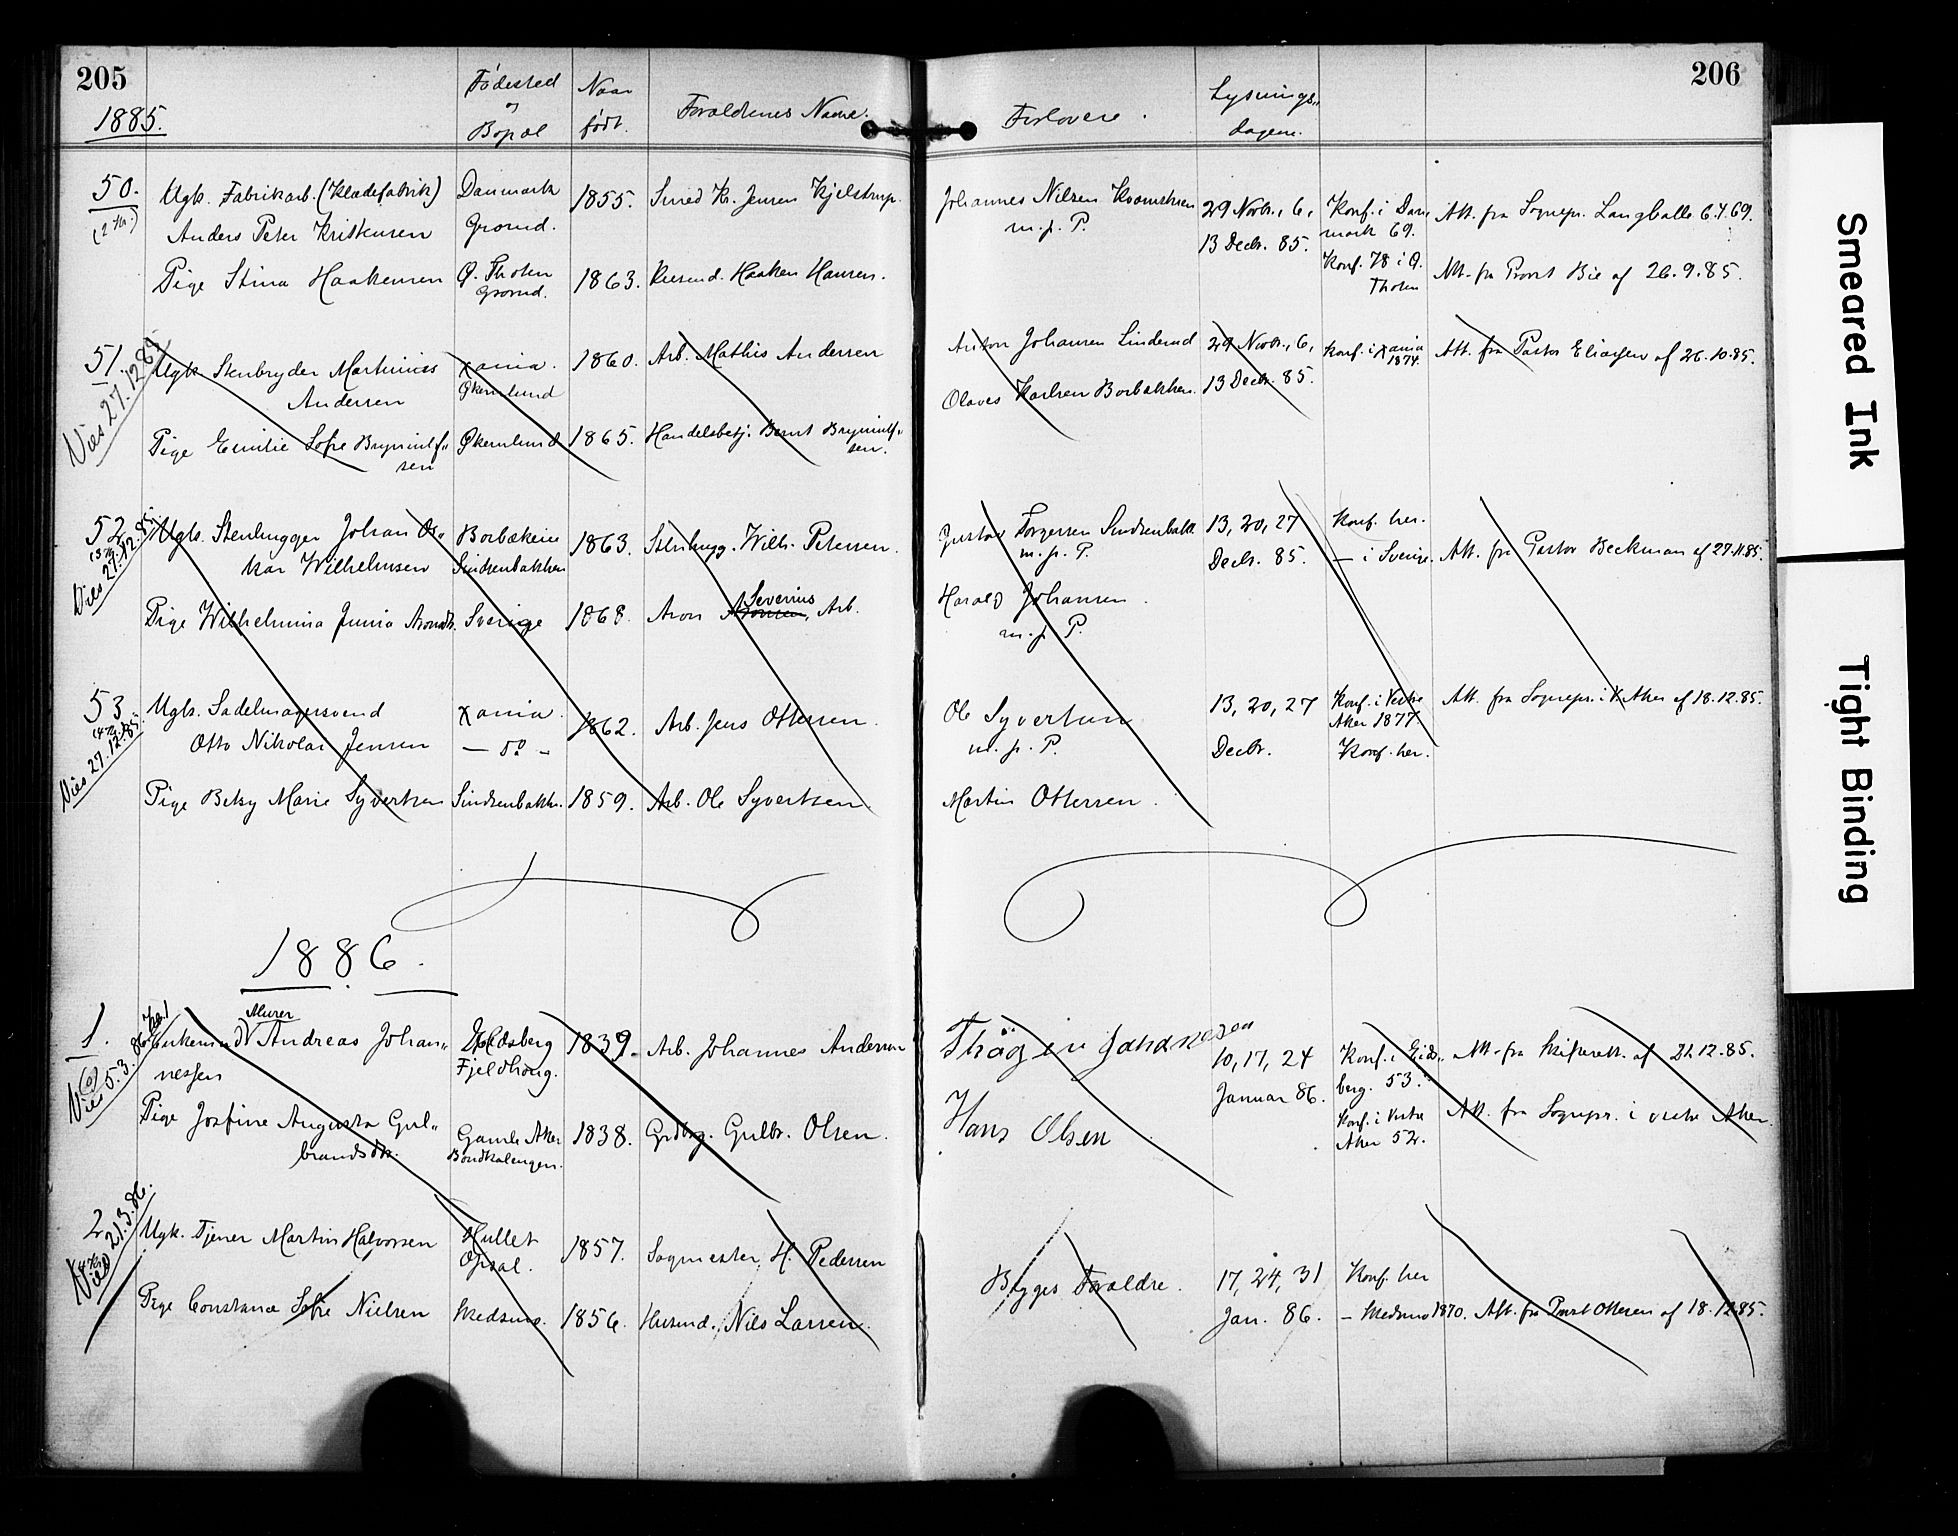 205
1885.
Fødested
og
Bopæl
Naar
født.
Forældrenes Navne.
Forlovere.
Lysnings-
dagene.
206
50.
(2 Kr.)
Ugk. Fabrikarb. (Klædefabrik)
Anders Peter Kristensen
Danmark
Grorud.
1855.
Smed Kr. Jensen Kjelstrup.
Johannes Nilsen
m. p. P.
29 Novbr., 6,
13 Decbr. 85.
Konf. i Dan-
mark 69.
Att. fra Sognepr. Langballe 6.7.69.
Pige Stina Haakensen
Ø. Thoten
Grorud.
1863.
Haaken Hansen.
Konf. 78 i Ø.
Thoten
Att. fra Provst Bie af 26.9.85.
51.
Viet 27.12.89
Ugk. Stenbryder Martinius
Andersen
Xania.
Økernlund
1860.
Arb. Mathis Andersen
Anton Johansen Linderud
29 Novbr., 6,
Konf. i Xania
1874.
Att. fra Pastor Eliassen af 26.10.85.
Olaves Karlsen Borbakken.
13 Decbr. 85.
Pige Emilie Sofie Bryniulf-
sen
Økernlund
1865.
Handelsbetj. Bernt Bryniulf-
sen.
52.
Viet 27.12.85.
Ugk. Stenhugger Johan Os-
kar Wilhelmsen
Sinsenbakken
1863.
Stenhugg. Wilh. Petersen.
Gustav Torgersen Sinsenbakk.
m. p. P.
13, 20, 27
Decbr. 85.
Konf. her.
— i Sverige.
Att. fra Pastor Beckman af 27.11.85.
Harald Johansen.
m. p. P.
Pige Wilhelmina Junia Aronsdtr.
Sverige
1868.
Aron Aronsen, Arb.
Severius
53
Viet 27.12.85.
Ugk. Sadelmagersvend
Otto Nikolai Jensen
Xania.
— do —
1862.
Arb. Jens Ottersen.
Ole Syvertsen
m. p. P.
13, 20, 27
Decbr.
Konf. i Vestre
Aker 1877
Konf. her.
Att. fra Sognepr. i V. Aker af 18.12.85.
Pige Betsy Marie Syvertsen
Sinsenbakk.
1859.
Arb. Ole Syvertsen.
Martin Ottersen.
1886.
1.
Viet 5.3.86
Enkemand Andreas Johan-
nessen
Murer
Eidsberg
Fjeldhoug.
1839.
Arb. Johannes Andersen
Johannesen
10, 17, 24
Januar 86.
Konf. i Eids-
berg. 53.
Att. fra Skifterett. af 21.12.85.
Hans Olsen
Konf. i Vestre
Aker 52.
Att. fra Sognepr. i vestre Aker.
Pige Josefine Augusta Gul-
brandsdtr.
Gamle Aker
1838.
Grdbrg. Gulbr. Olsen.
2.
Viet 21.3.86.
Ugk. Tjener Martin Halvorsen
Hullet
Opsal.
1857.
Sagmester H. Pedersen
Begges Forældre.
17, 24, 31
Jan. 86.
Konf. her
— Modum 1870.
Att. fra Provst Ottesen af 18.12.85.
Pige Constance Sofie Nielsen
Modum.
1856.
Husmd. Nils Larsen.
Smeared Ink
Tight Binding